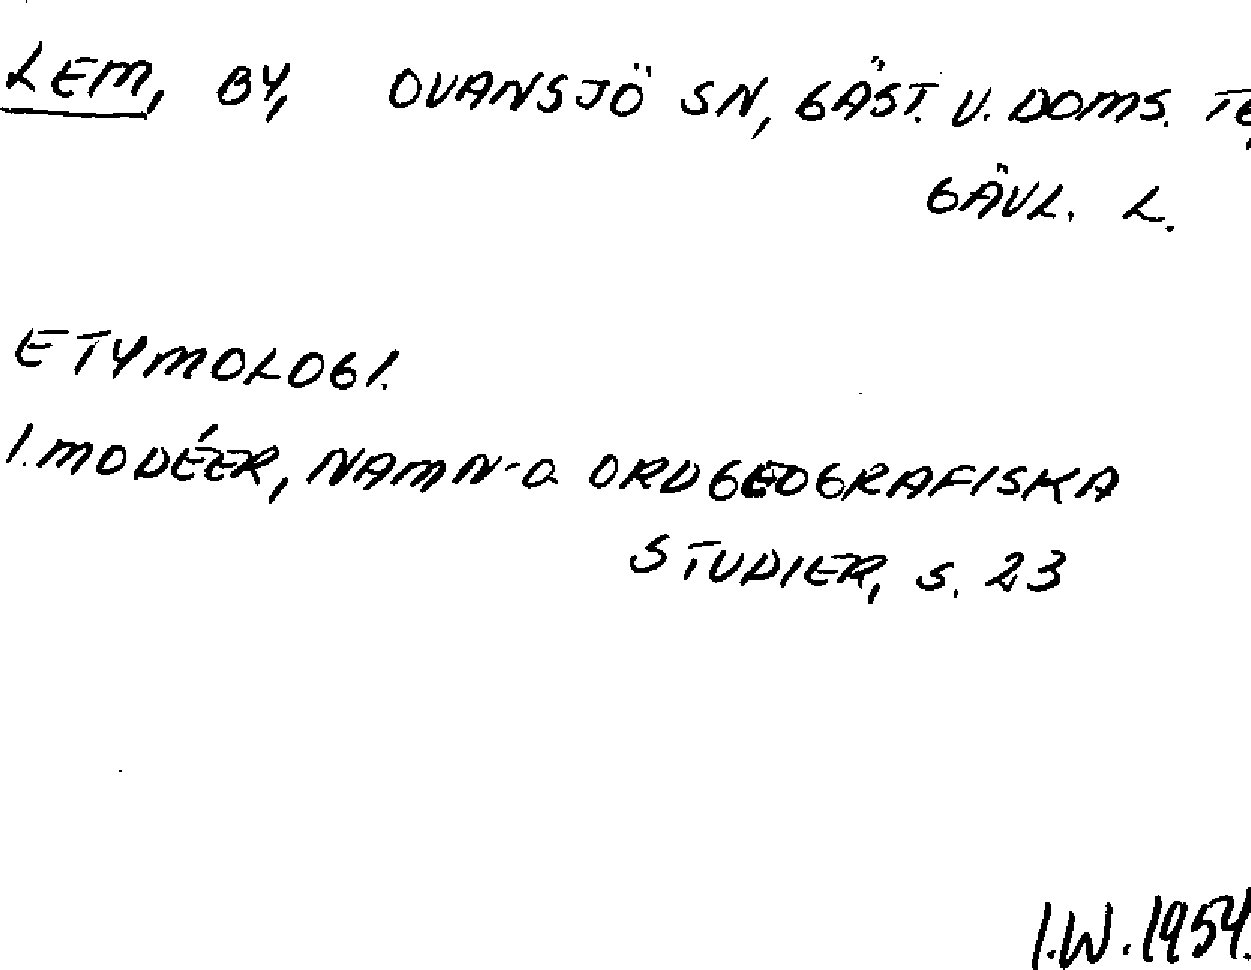 LEM, BY, OVANSJÖ SN, GÄST. V. DOMS.
GÄVL. L.
ETYMOLOGI.
I. MODÉER, NAMN- O. ORDGEOGRAFISKA
STUDIER, S. 23
I.W. 1954.